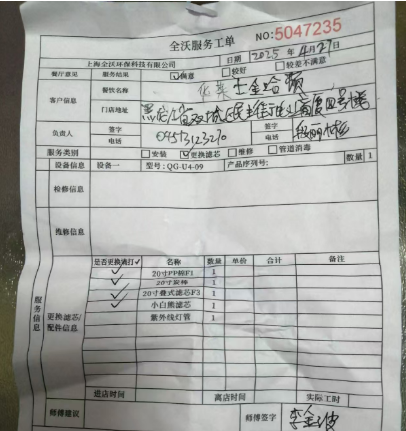 全沃服务工单 NO:5047235
上海全沃环保科技有限公司 日期 2025年4月27日
餐厅意见 服务结果 ☑满意 □较好 □较差不满意
客户信息 餐饮名称 华莱士金哈顿
门店地址 黑龙江省双城
负责人 签字 电话 04573123270 签字 电话
服务类别 □安装 ☑更换滤芯 □维修 □管道消毒
设备信息 设备一 型号:QG-U4-09 产品序列号: 数量 1
检修信息
维修信息
服务信息 更换滤芯/配件信息
是否更换请打✓ 名称 数量 单价 合计 备注
✓ 20寸PP棉F1 1
✓ 20寸炭棒 1
✓ 20寸叠式滤芯F3 1
✓ 小白熊滤芯 1
紫外线灯管 1
进店时间 离店时间 实际工时
师傅建议 师傅签字 李金波